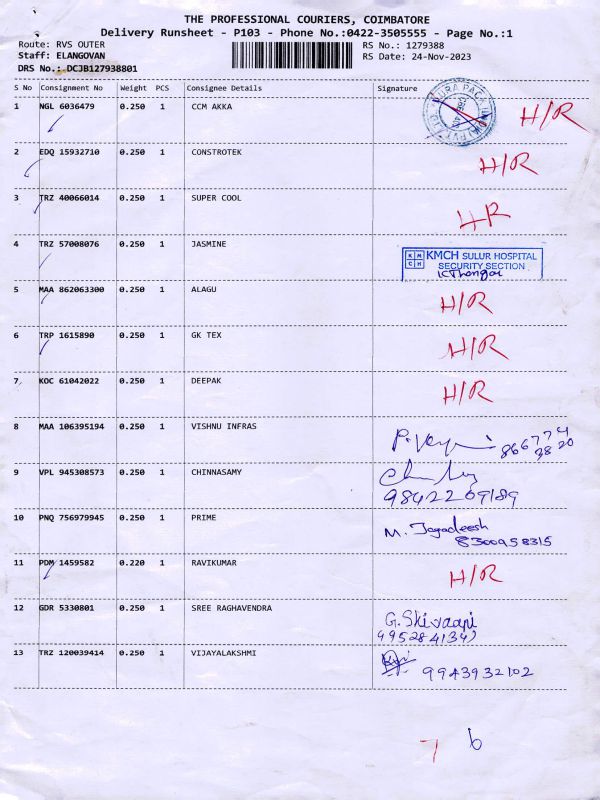 THE PROFESSIONAL COURIERS, COIMBATORE
Delivery Runsheet - P103 - Phone No.:0422-3505555 - Page No.:1
Route: RVS OUTER RS No.: 1279388
Staff: ELANGOVAN RS Date: 24-Nov-2023
DRS No.: DCJB127938801
S No Consignment No Weight PCS Consignee Details Signature
1 NGL 6036479 0.250 1 CCM AKKA H/R
2 EDQ 15932710 0.250 1 CONSTROTEK H/R
3 TRZ 40066014 0.250 1 SUPER COOL HR
4 TRZ 57008076 0.250 1 JASMINE
KMCH KMCH SULUR HOSPITAL
SECURITY SECTION
5 MAA 862063300 0.250 1 ALAGU H/R
6 TRP 1615890 0.250 1 GK TEX H/R
7 KOC 61042022 0.250 1 DEEPAK H/R
8 MAA 106395194 0.250 1 VISHNU INFRAS
9 VPL 945308573 0.250 1 CHINNASAMY
9842209189
10 PNQ 756979945 0.250 1 PRIME M. Jagadeesh
8300958315
11 PDM 1459582 0.220 1 RAVIKUMAR H/R
12 GDR 5330801 0.250 1 SREE RAGHAVENDRA
13 TRZ 120039414 0.250 1 VIJAYALAKSHMI 9943932102
7 6